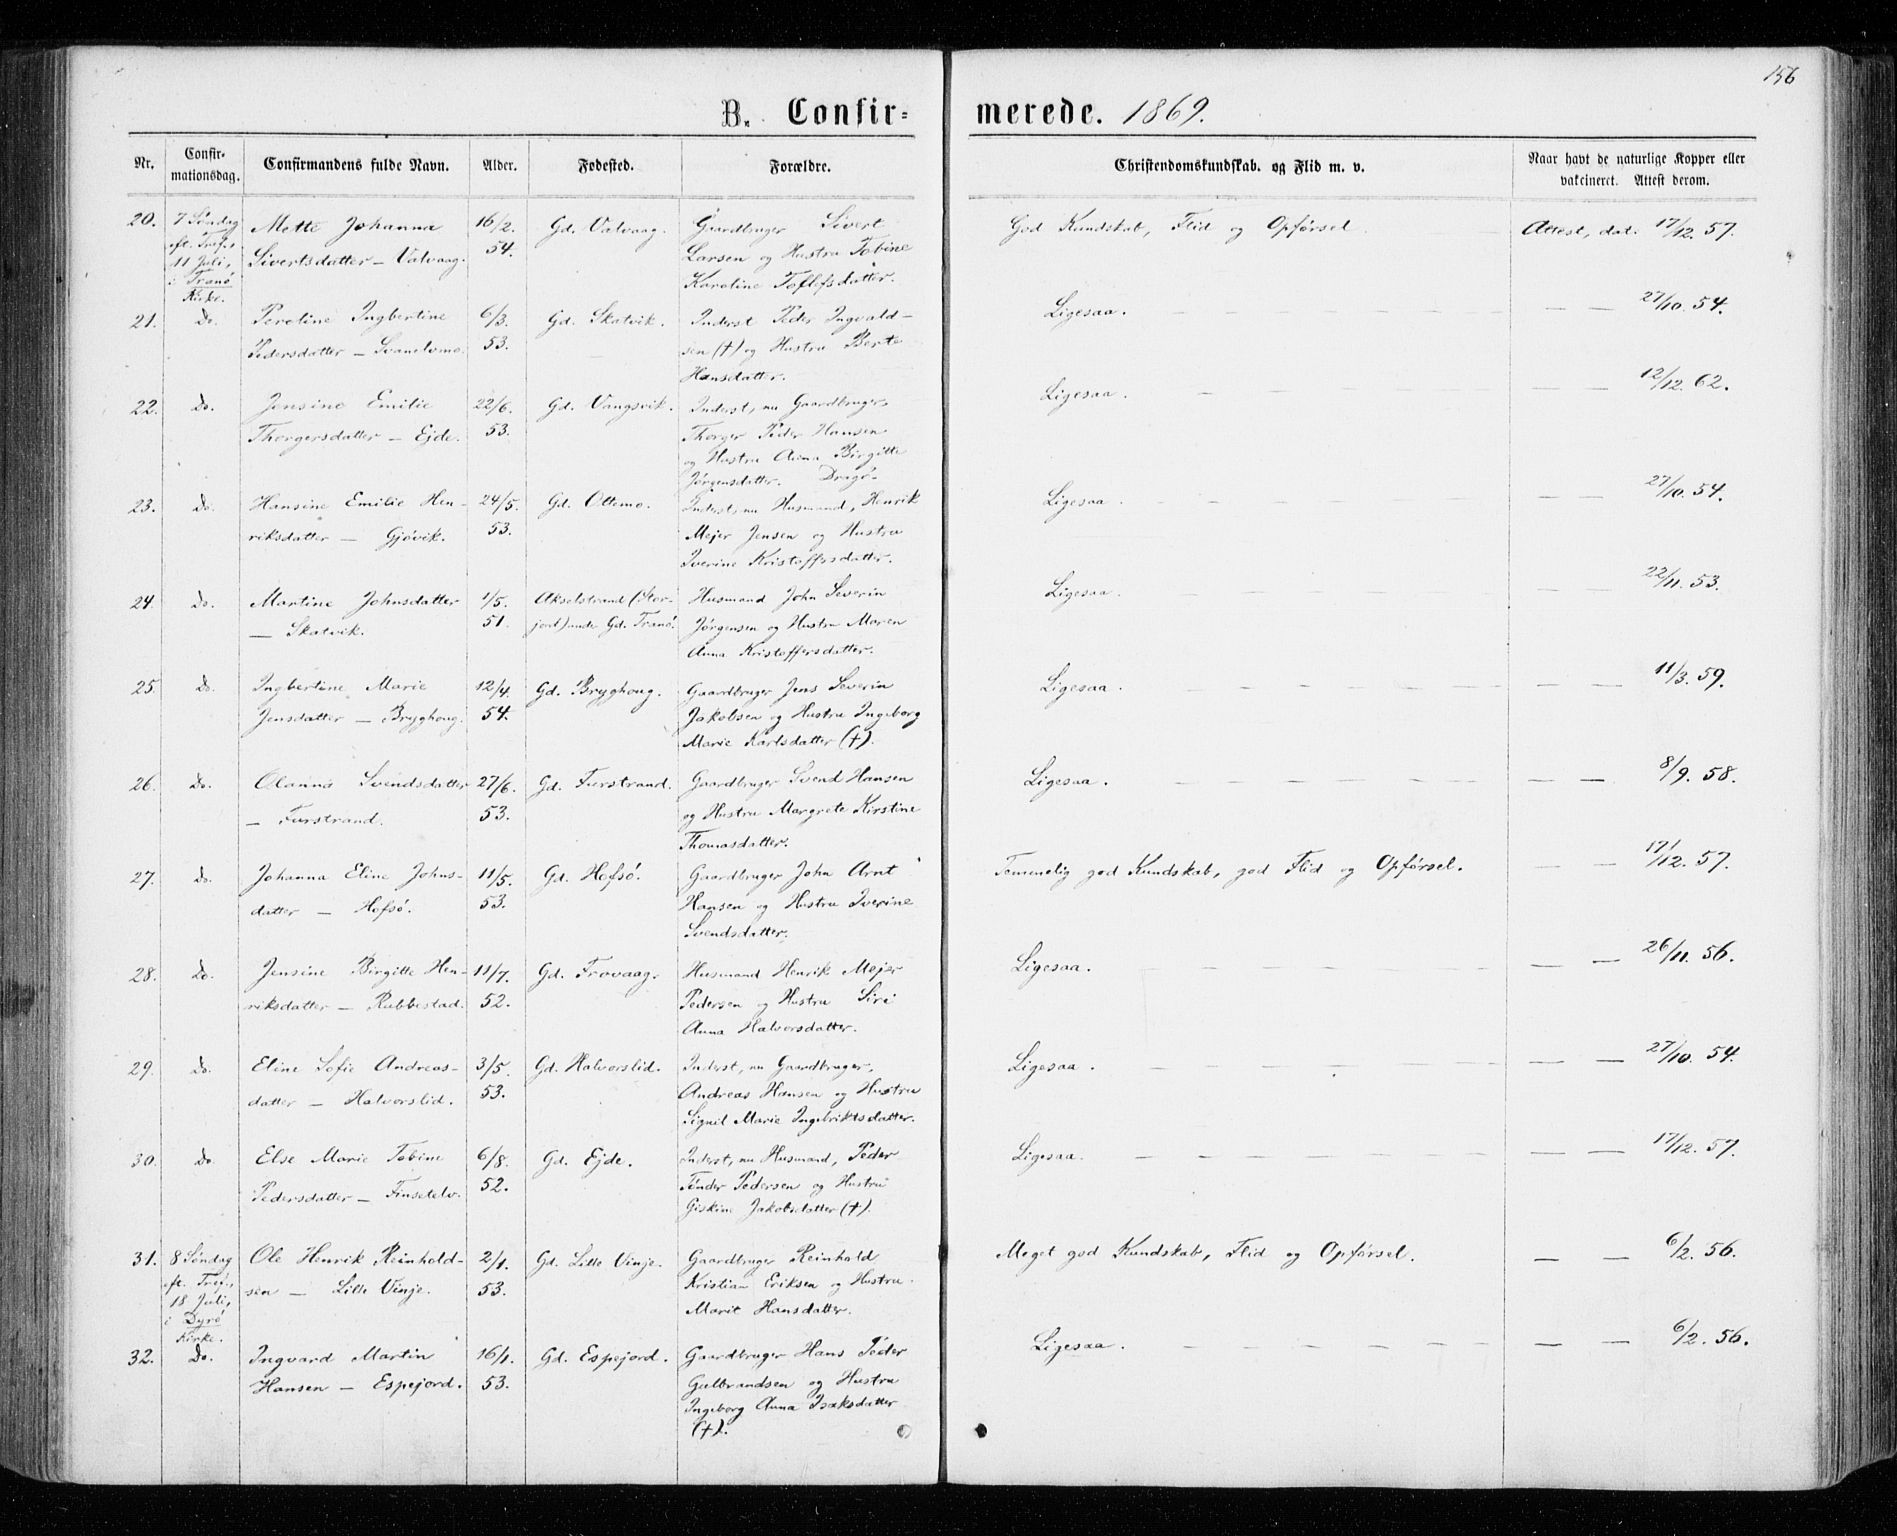 156
B. Confir=merede. 1869.
Nr. Confir-mationsdag. Confirmandens fulde Navn. Alder. Fødested. Forældre. Christendomskundskab. og Flid m. v. Naar havt de naturlige Kopper eller vakcineret. Attest derom.
20. 7 Søndag Mette Johanna 16/2. Gd. Valvaag. Gaardbruger Sivert God Kundskab, Flid og Opførsel. Attest, dat. 17/12. 57.
eft. Tref., Sivertsdatter — Valvaag. 54. Larsen og Hustru Tobine
11 Juli, Karoline Toflefsdatter.
i Tranø
Kirke.
21. Do. Peroline Ingbertine 6/3. Gd. Skatvik. Inderst Peder Ingvald- Ligesaa. — — 27/10. 54.
Pedersdatter — Svanelvmo. 53. sen (†) og Hustru Berte
Hansdatter.
22. Do. Jensine Emilie 22/6. Gd. Vangsvik. Inderst, nu Gaardbruger, Ligesaa. — — 12/12. 62.
Thorgersdatter — Ejde. 53. Thorger Peder Hansen
og Hustru Anna Birgitte
Jørgensdatter. Dragø-
23. Do. Hansine Emilie Hen- 24/5. Gd. Ottemo. Inderst, nu Husmand, Henrik Ligesaa. — — 27/10. 54.
riksdatter — Gjøvik. 53. Mejer Jensen og Hustru
Iverine Kristoffersdatter.
24. Do. Martine Johnsdatter 1/5. Akselstrand (Stor- Husmand John Severin Ligesaa. — — 22/11. 53.
— Skatvik. 51. jord) under Gd. Tranø. Jørgensen og Hustru Maren
Anna Kristoffersdatter.
25. Do. Ingbertine Marie 12/4. Gd. Bryghoug. Gaardbruger Jens Severin Ligesaa. — — 11/3. 59.
Jensdatter — Bryghoug. 54. Jakobsen og Hustru Ingeborg
Marie Karlsdatter (†).
26. Do. Olanna Svendsdatter 27/6. Gd. Furstrand. Gaardbruger Svend Hansen Ligesaa. — — 8/9. 58.
— Furstrand. 53. og Hustru Margrete Kirstine
Thomasdatter.
27. Do. Johanna Eline Johns- 11/5. Gd. Hofsø. Gaardbruger John Arnt Temmelig god Kundskab, god Flid og Opførsel. — — 17/12. 57.
datter — Hofsø. 53. Hansen og Hustru Iverine
Svendsdatter.
28. Do. Jensine Birgitte Hen- 11/7. Gd. Frovaag. Husmand Henrik Mejer Ligesaa. — — 26/11. 56.
riksdatter — Rubbestad. 52. Pedersen og Hustru Siri
Anna Halvorsdatter.
29. Do. Eline Sofie Andreas- 3/5. Gd. Halvorslid. Inderst, nu Gaardbruger, Ligesaa. — — 27/10. 54.
datter — Halvorslid. 53. Andreas Hansen og Hustru
Signil Marie Ingebriktsdatter.
30. Do. Else Marie Tobine 6/8. Gd. Ejde. Inderst, nu Husmand, Peder Ligesaa. — — 17/12. 57.
Pedersdatter — Finsetelv. 52. Tender Pedersen og Hustru
Giskine Jakobsdatter (†).
31. 8 Søndag Ole Henrik Reinhold- 2/1. Gd. Lille Vinje. Gaardbruger Reinhold Meget god Kundskab, Flid og Opførsel. — — 6/2. 56.
eft. Tref., sen — Lille Vinje. 53. Kristian Eriksen og Hustru
18 Juli, Marit Hansdatter.
i Dyrø
Kirke.
32. Do. Ingvard Martin 16/1. Gd. Espejord. Gaardbruger Hans Peder Ligesaa. — — 6/2. 56.
Hansen — Espejord. 53. Gulbrandsen og Hustru
Ingeborg Anna Isaksdatter
(†).